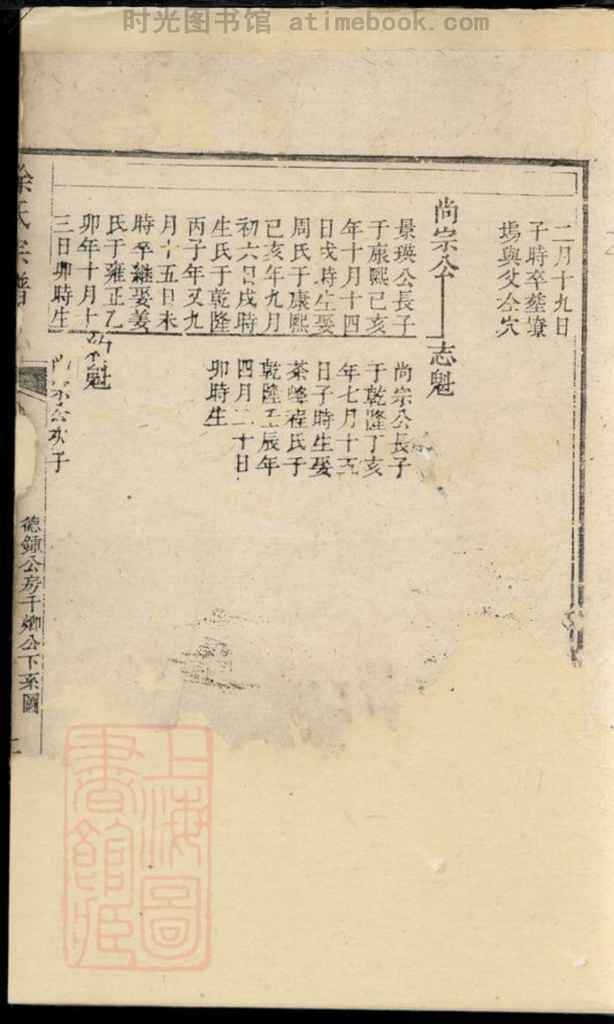 时光图书馆 atimebook.com
二月十九日
子時卒塟寮
塢與父仝穴
尚宗公
志魁
景瑛公長子
于康熙己亥
年十月十四
日戌時生娶
周氏于康熙
己亥年九月
初六日戌時
生氏于乾隆
丙子年又九
月十五日未
時卒継娶姜
氏于雍正乙
卯年十月十
三日卯時生
尚宗公長子
于乾隆丁亥
年七月十五
日子時生娶
茶峰程氏于
乾隆壬辰年
四月二十日
卯時生
魁
宗公次子
徐氏宗譜
德鍾公房千卿公下系圖
上海圖
書館藏